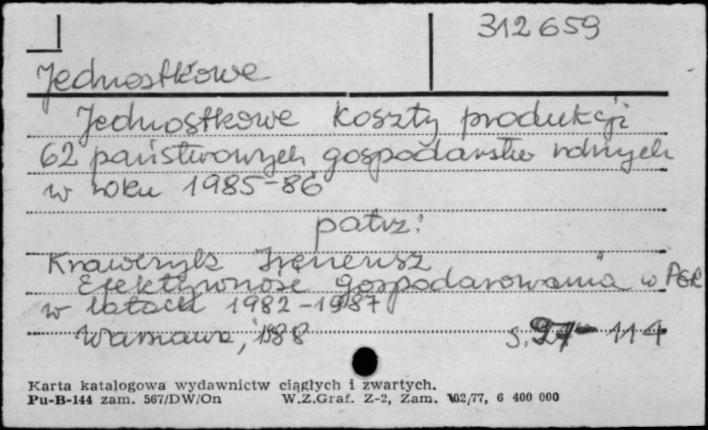 312659
Jednostkowe
Jednostkowe koszty produkcji
62 państwowych gospodarstw rolnych
w roku 1985-86
patrz:
Krawczyk Ireneusz
Efektywność gospodarowania w PGR
w latach 1982-1987
Warszawa, 1988
s. 97-114
Karta katalogowa wydawnictw ciągłych i zwartych.
Pu-B-144 zam. 567/DW/On W.Z.Graf. Z-2, Zam. 102/77, 6 400 000